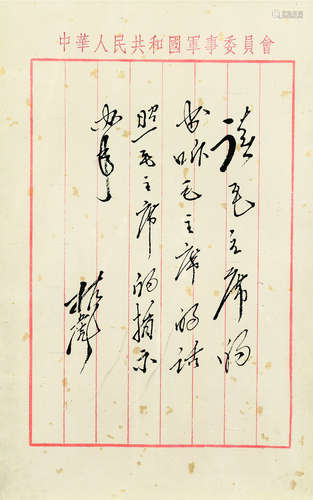 中華人民共和國軍事委員會
读毛主席的
书听毛主席的话
照毛主席的指示
办事
林彪